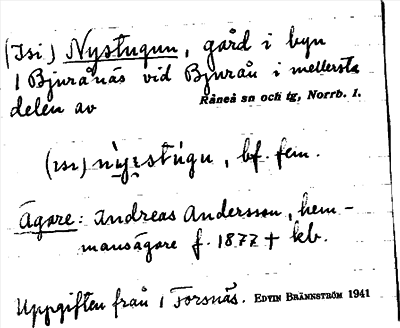 (Isi) Nystugun, gård i byn
1 Bjurånäs vid Bjurån i mellersta
delen av Råneå sn och tg, Norrb. l.
(ɪsɪ) nỳɪstúgu, bf. fem.
Ägare: Andreas Andersson, hem-
mansägare f. 1877 + kb.
Uppgiften från 1 Forsnäs. EDVIN BRÄNNSTRÖM 1941